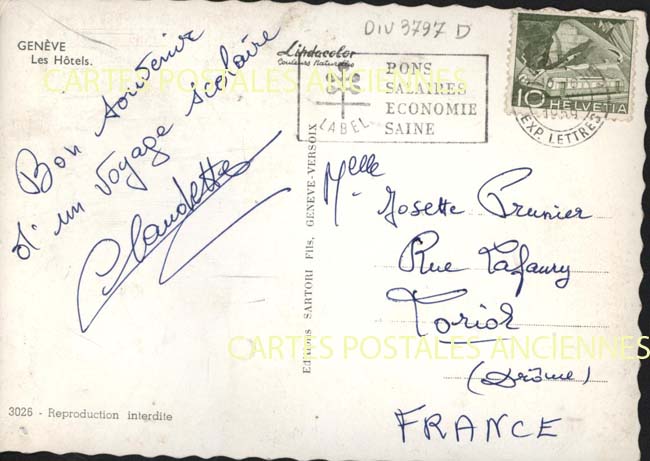 DIV 3797 D
GENÈVE
Les Hôtels.
Lindacolor
Couleurs Naturelles
BONS
SALAIRES
ECONOMIE
SAINE
LABEL
10 HELVETIA
EXP. LETTRES
CARTES POSTALES ANCIENNES
Bon souvenir
d'un voyage scolaire
Claudette
Editions SARTORI Fils, GENEVE-VERSOIX
Melle Josette Prunier
Rue
(Drôme)
FRANCE
CARTES POSTALES ANCIENNES
3026 - Reproduction interdite